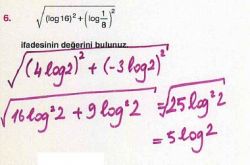 6. √((log16)² + (log 1/8)²)
ifadesinin değerini bulunuz.
√((4log2)² + (-3log2)²)
√(16log²2 + 9log²2) = √(25log²2)
= 5log2